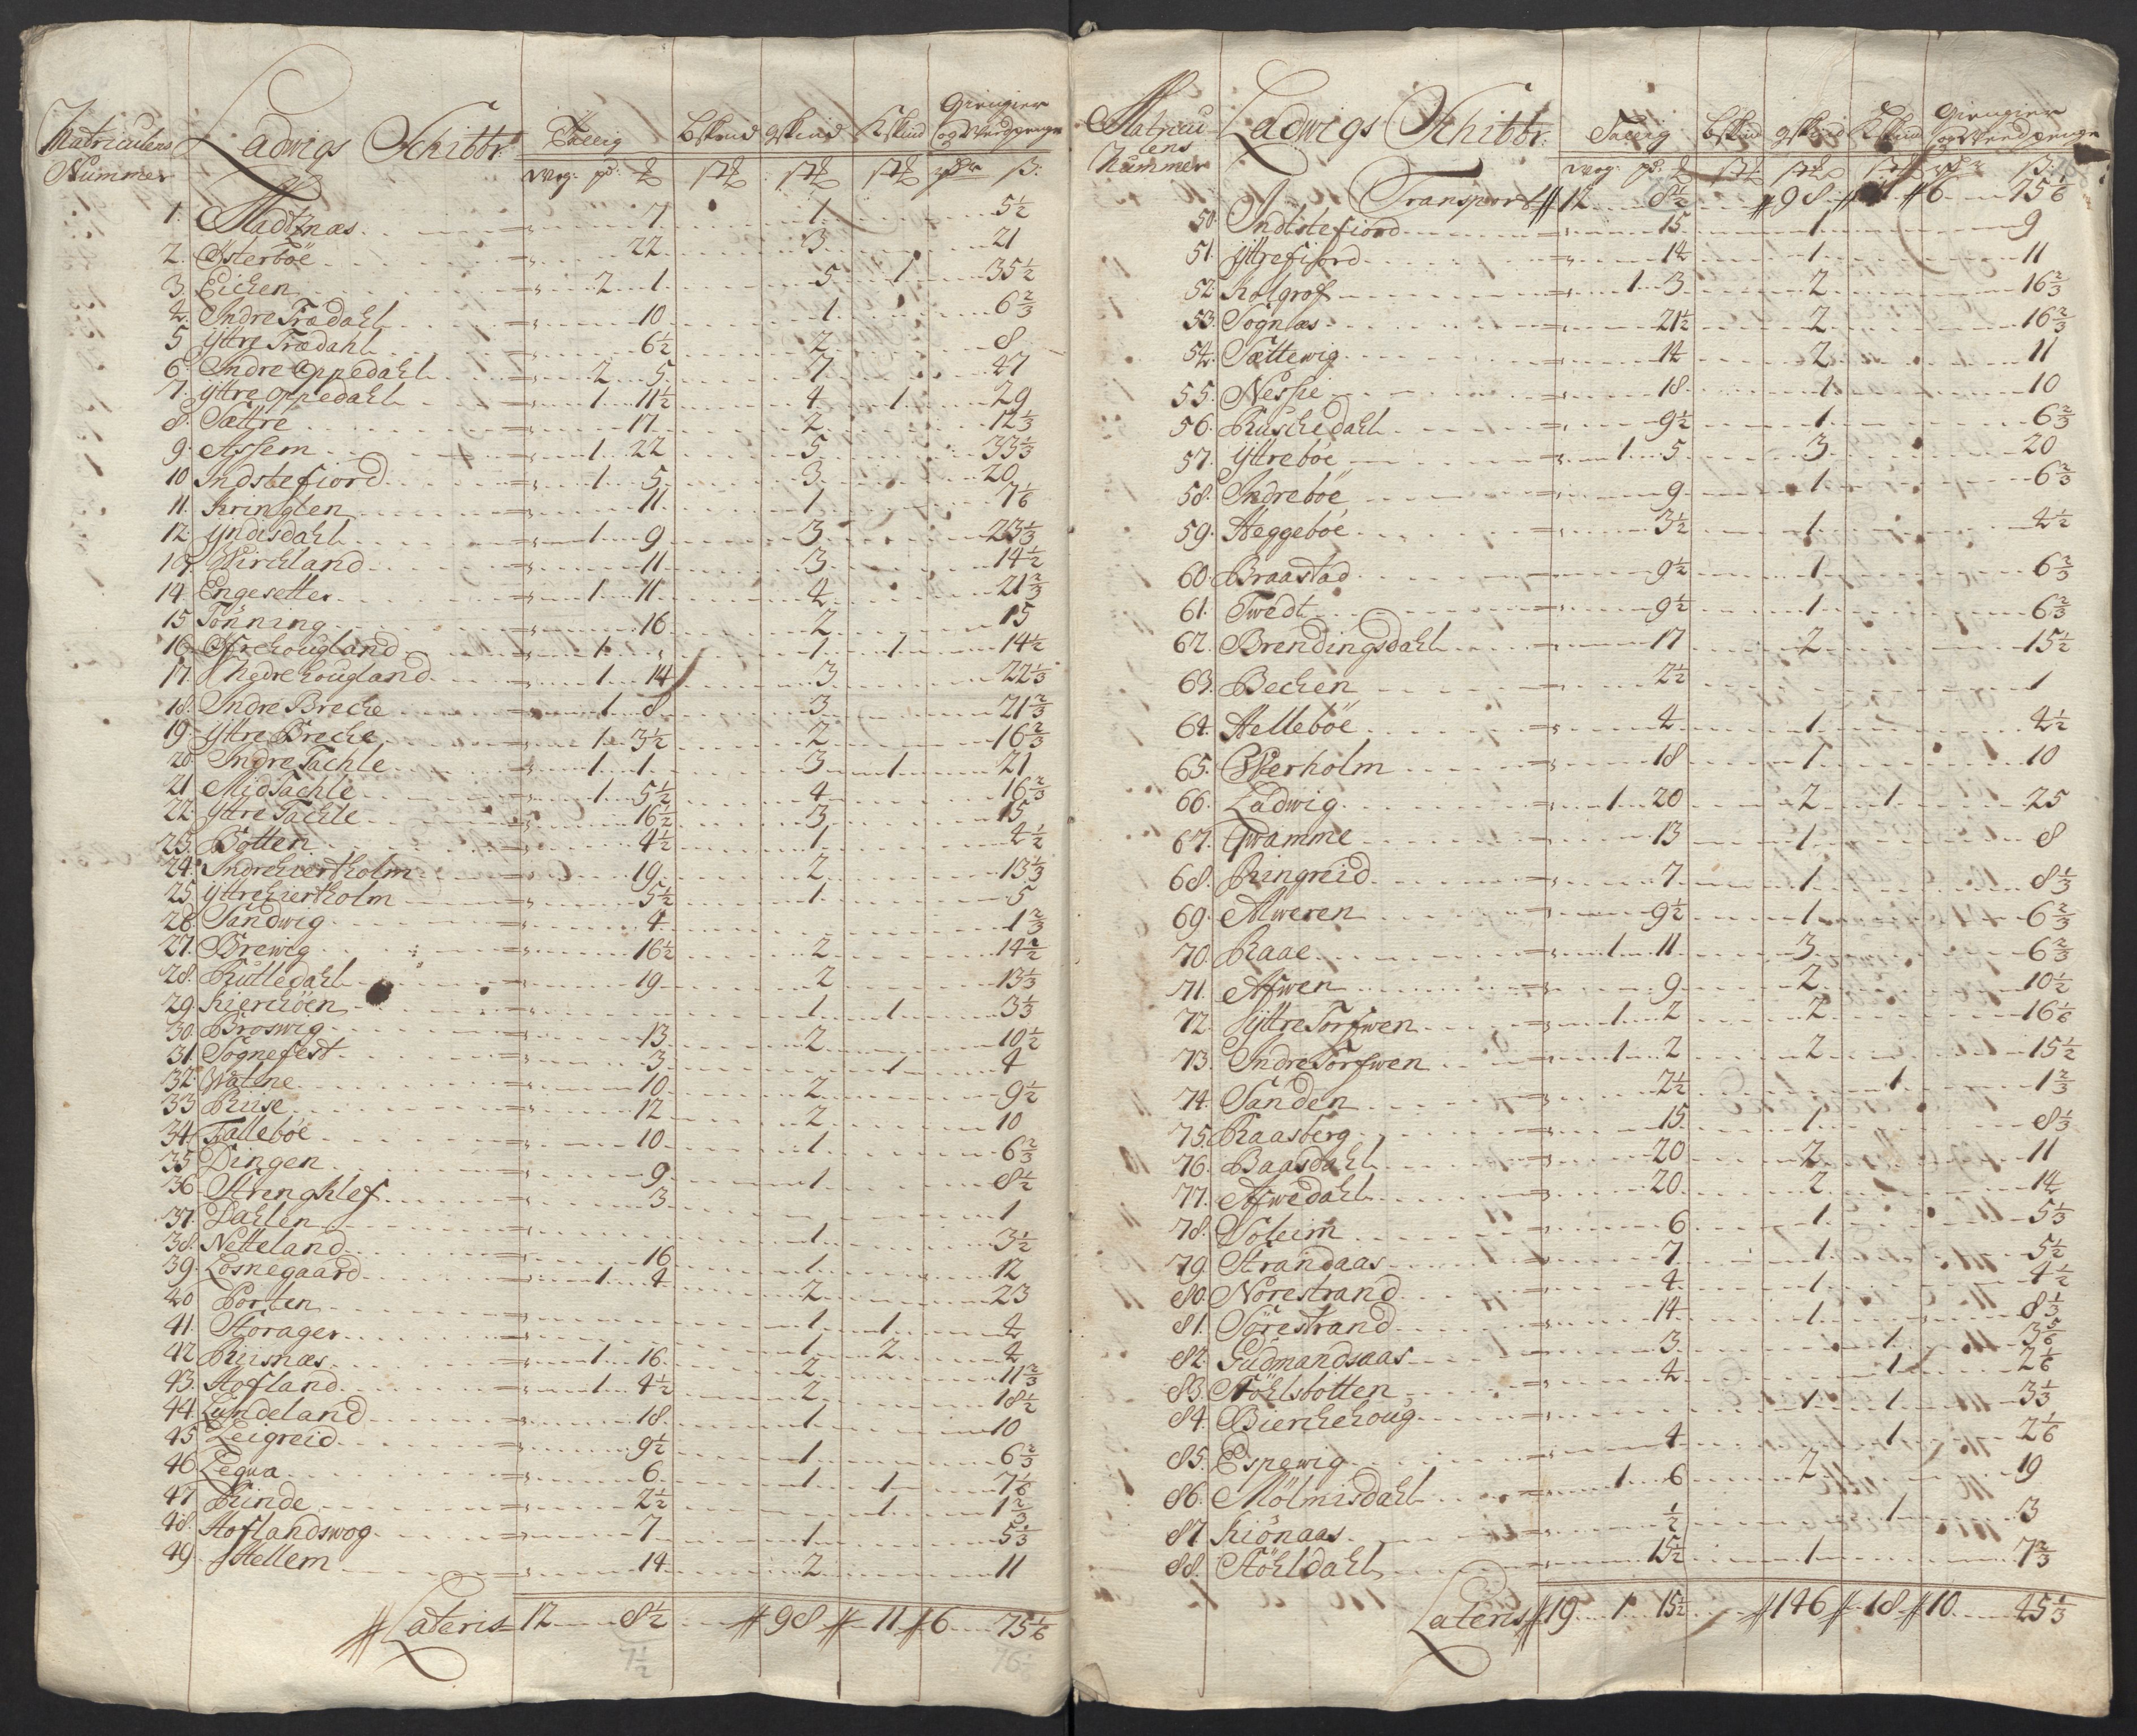 Matriculens Nummer Ladwigs Schibbr: Tallig Bskind gskind Kskind Giengier og Werdpenge
Wog: pd: ℔ st st st rdr ß:
1. Stadtznæs 7 1 5½
2. Østerböe 22 3 21
3. Eichen 2 1 5 1 35½
4. Indre Trædahl 10 1 6⅔
5 Yttre Trædahl 6½ 2 8
6. Indre Oppedahl 2 5 7 47
7. Yttre Oppedahl 1 11½ 4 1 29
8. Sættre 17 2 12⅓
9. Assem 1 22 5 33⅓
10 Indstefiord 1 5 3 20
11. Kringlen 11 1 7⅙
12 Yndisdahl 1 9 3 23⅓
13 Kirchland 11 3 14½
14 Engesetter 1 11 4 21⅔
15 Tönning 16 2 15
16. Öfrehougland 1 1 1 14½
17. Nedrehougland 1 14 3 22⅓
18. Indre Breche 1 8 3 21⅔
19. Yttre Breche 1 3½ 2 16⅔
20 Indre Tachle 1 1 3 1 21
21 Mid Tachle 1 5½ 4 16⅔
22. Yttre Tachle 16½ 3 15
23. Botten 4½ 1 4½
24. Indrehvertholm 19 2 13⅓
25. Yttrehvertholm 5½ 1 5
26. Sandwig 4 1⅔
27. Brewig 16½ 2 14½
28. Rutledahl 19 2 13⅓
29. Kierchöen 1 1 3⅓
30. Broswig 13 2 10½
31. Sognefest 3 1 4
32. Watne 10 2 9½
33 Riise 12 2 10
34. Tralleböe 10 1 6⅔
35 Dingen 9 1 8½
36. Strenghlef 3 1
37. Dahlen 1 3½
38. Netteland 16 1 12
39. Losnegaard 1 4 2 23
40 Porten 1 1 4
41. Storager 1 2 4
42 Riisnæs 1 16 2 11⅔
43. Hofland 1 4½ 2 18½
44. Lundeland 18 1 10
45 Leigreid 9½ 1 6⅔
46. Leqva 6 1 1 7⅙
47 Rinde 2½ 1 1⅔
48. Hoflandswog 7 1 5⅓
49. Hellem 14 2 11
Lateris 12 8½ 98 11 6 75⅙
7½ 76
Matriculens Nummer Ladwigs Schibbr: Tallig Bskind gskind Kskind Giengier og Werdpenge
Wog: pd: ℔ st st st rdr ß:
Transport 12 8½ 98 11 6 75⅙
50. Indtstefiord 15 1 9
51. Yttrefiord 14 1 11
52. Kolgrof 1 3 2 16⅔
53. Sognæs 21½ 2 16⅔
54. Sættewig 14 2 11
55. Nessie 18 1 10
56. Ruschedahl 9½ 1 6⅔
57. Yttreböe 1 5 3 20
58. Indreböe 9 1 6⅔
59. Heggeböe 3½ 1 4½
60 Braastad 9½ 1 6⅔
61. Twedt 9½ 1 6⅔
62. Brendingsdahl 17 2 15½
63. Bechen 2½ 1
64. Helleböe 4 1 4½
65. Werholm 18 1 10
66. Ladwig 1 20 2 1 25
67. Qvamme 13 1 8
68. Ringreid 7 1 8⅓
69. Alweren 9½ 1 6⅔
70. Raae 1 11 3 6⅔
71. Afwen 9 2 10½
72. Yttre Torfwen 1 2 2 16⅙
73. Indre Torfwen 1 2 2 15½
74. Sanden 2½ 1 1⅔
75. Raasberg 15 1 8⅓
76. Baasdahl 20 2 11
77. Afwedahl 20 2 14
78. Soleim 6 1 5⅓
79. Strandaas 7 1 5½
80. Norestrand 4 1 4½
81. Sörestrand 14 1 8⅓
82. Gudmandsaas 3 1 3⅚
83. Stöhlsbotten 4 1 2⅙
84. Bierchehoug 1 1 3⅓
85. Espewig 4 1 2⅙
86. Mölmisdahl 1 6 2 19
87. Kiönaas ½ 1 3
88. Stöhldahl 15½ 1 7⅔
Lateris 19 1 15½ 146 18 10 45⅓